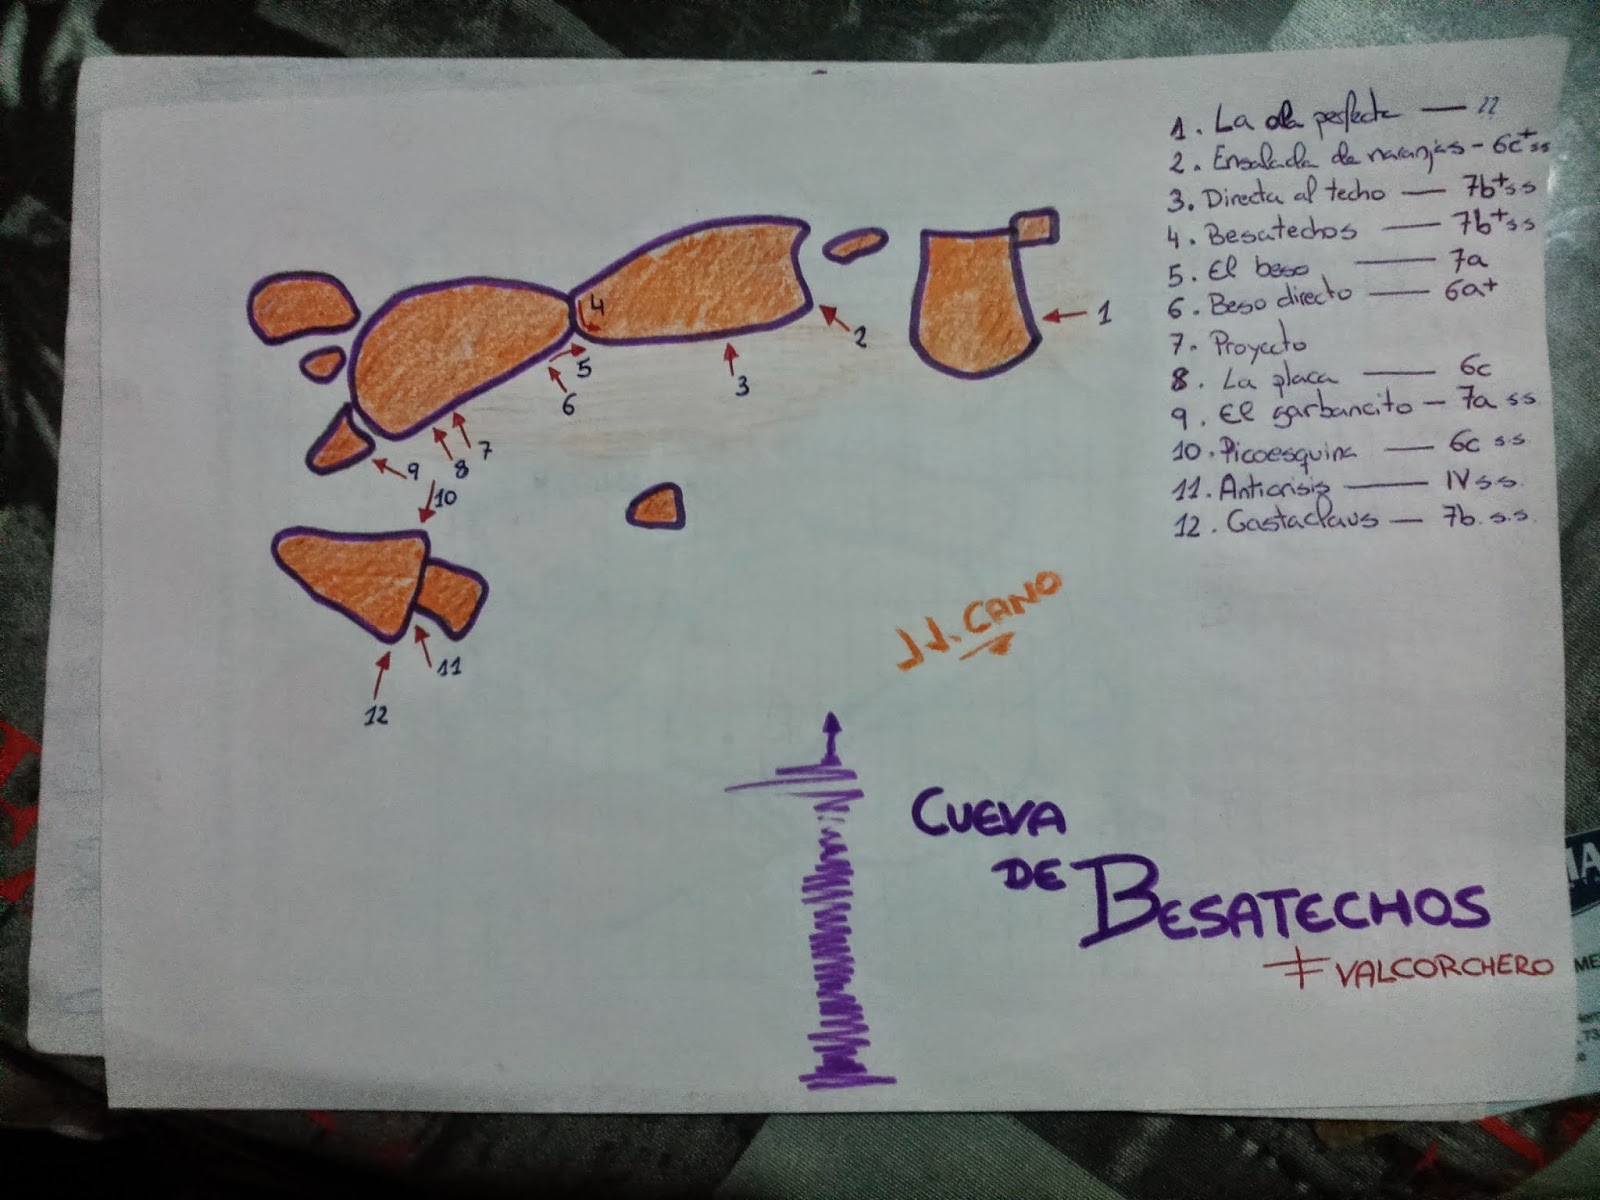 1. La ola perfecta — ??
2. Ensalada de naranjas - 6c+ss
3. Directa al techo — 7b+ss
4. Besatechos — 7b+ss
5. El beso — 7a
6. Beso directo — 6a+
7. Proyecto
8. La placa — 6c
9. El garbancito — 7a ss
10. Picoesquina — 6c s.s
11. Anticrisis — IV s.s.
12. Gastaclaus — 7b. s.s.
4
1
5
2
6
3
7
8
9
10
11
12
J.J. CANO
CUEVA
DE BESATECHOS
VALCORCHERO
MA
ME
73